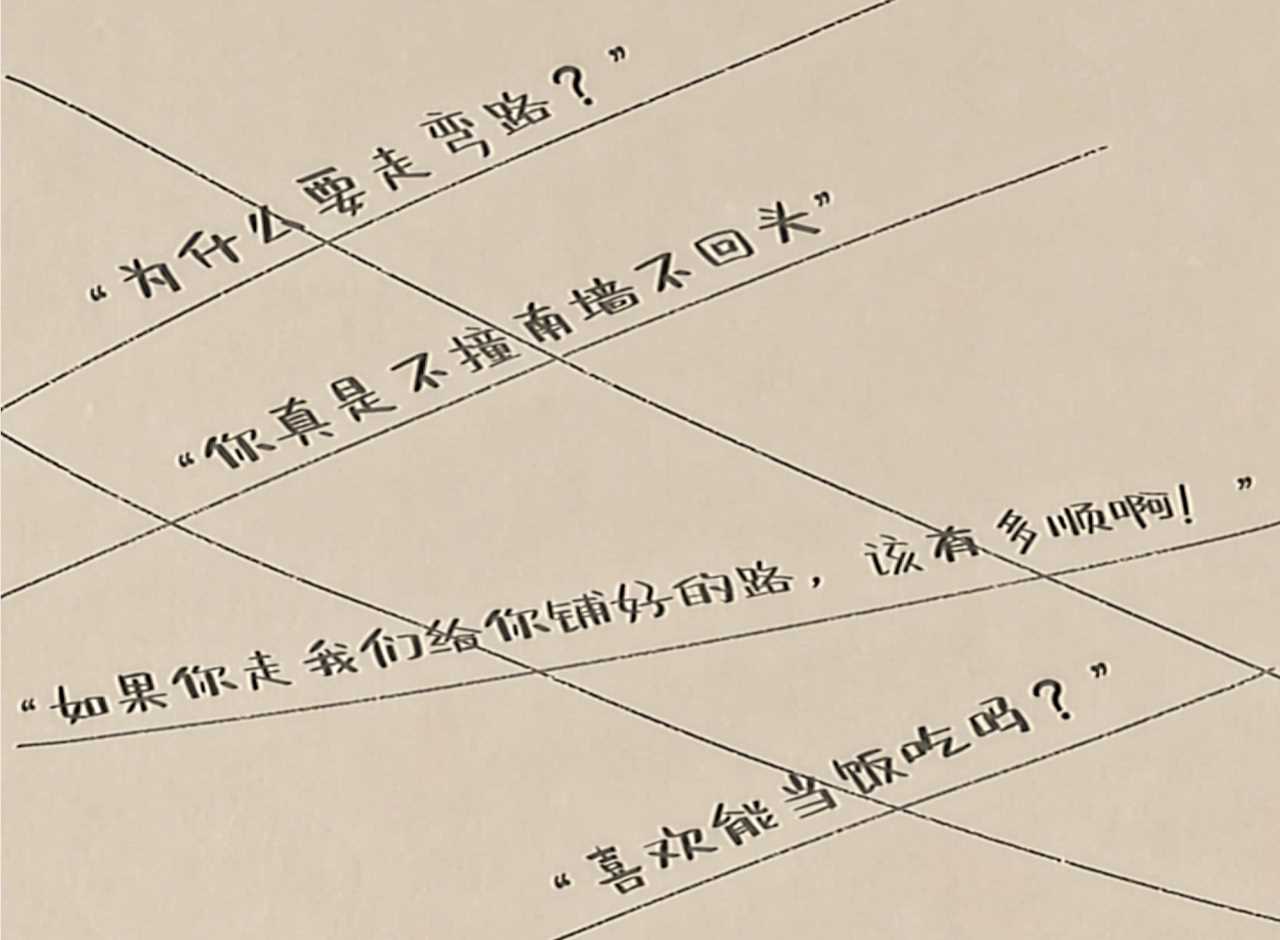 “为什么要走弯路？”
“你真是不撞南墙不回头”
“如果你走我们给你铺好的路，该有多顺啊！”
“喜欢能当饭吃吗？”